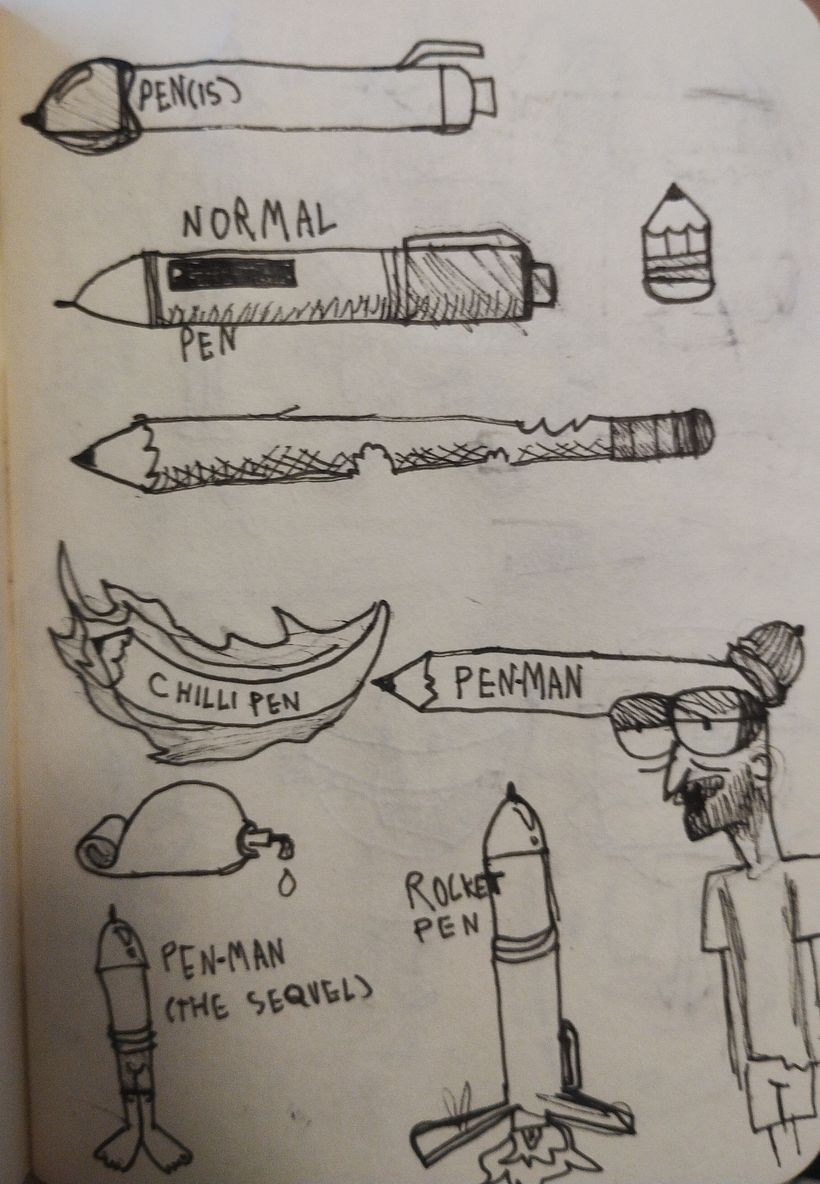 PEN(IS)
NORMAL
PEN
CHILLI PEN
PEN-MAN
ROCKET
PEN
PEN-MAN
(THE SEQUEL)